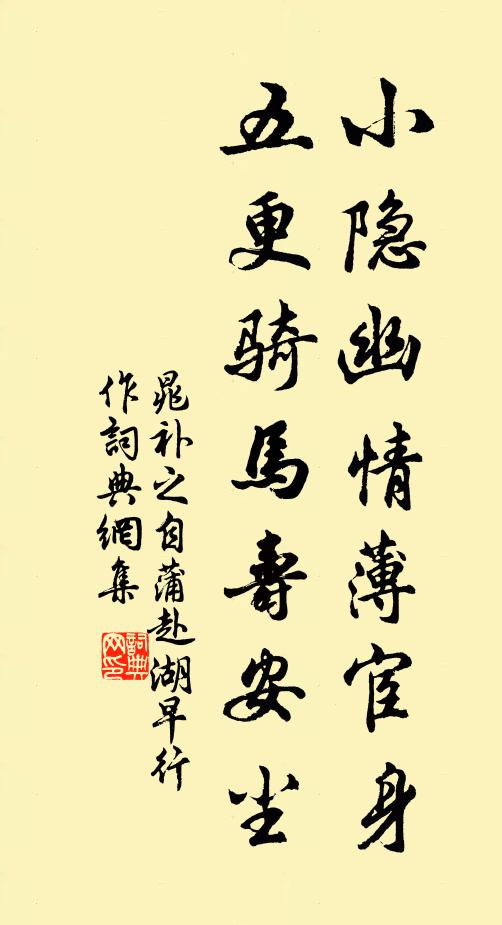 小隐幽情薄宦身
五更骑馬壽安尘
晁补之自蒲赴湖早行
作詞典網集
詞典